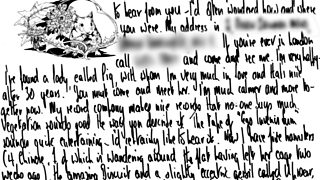 to hear from you - I'd often wondered how and where
you were. My address is
If you're ever in London
call and come and see me. I'm very balli
I've found a lady called Pig, with whom I'm very much in love and
after 30 years. You must come and meet her. I'm much calmer and more to-
gether now. My record company makes nice records that no-one buys much.
Vegetation sounds good the way you describe it. The tape of
sounds quite entertaining. I'd really like to hear it. Now I have five hamsters
(4 Chinese, 1 of which is wandering around the flat having left her cage two
weeks ago)